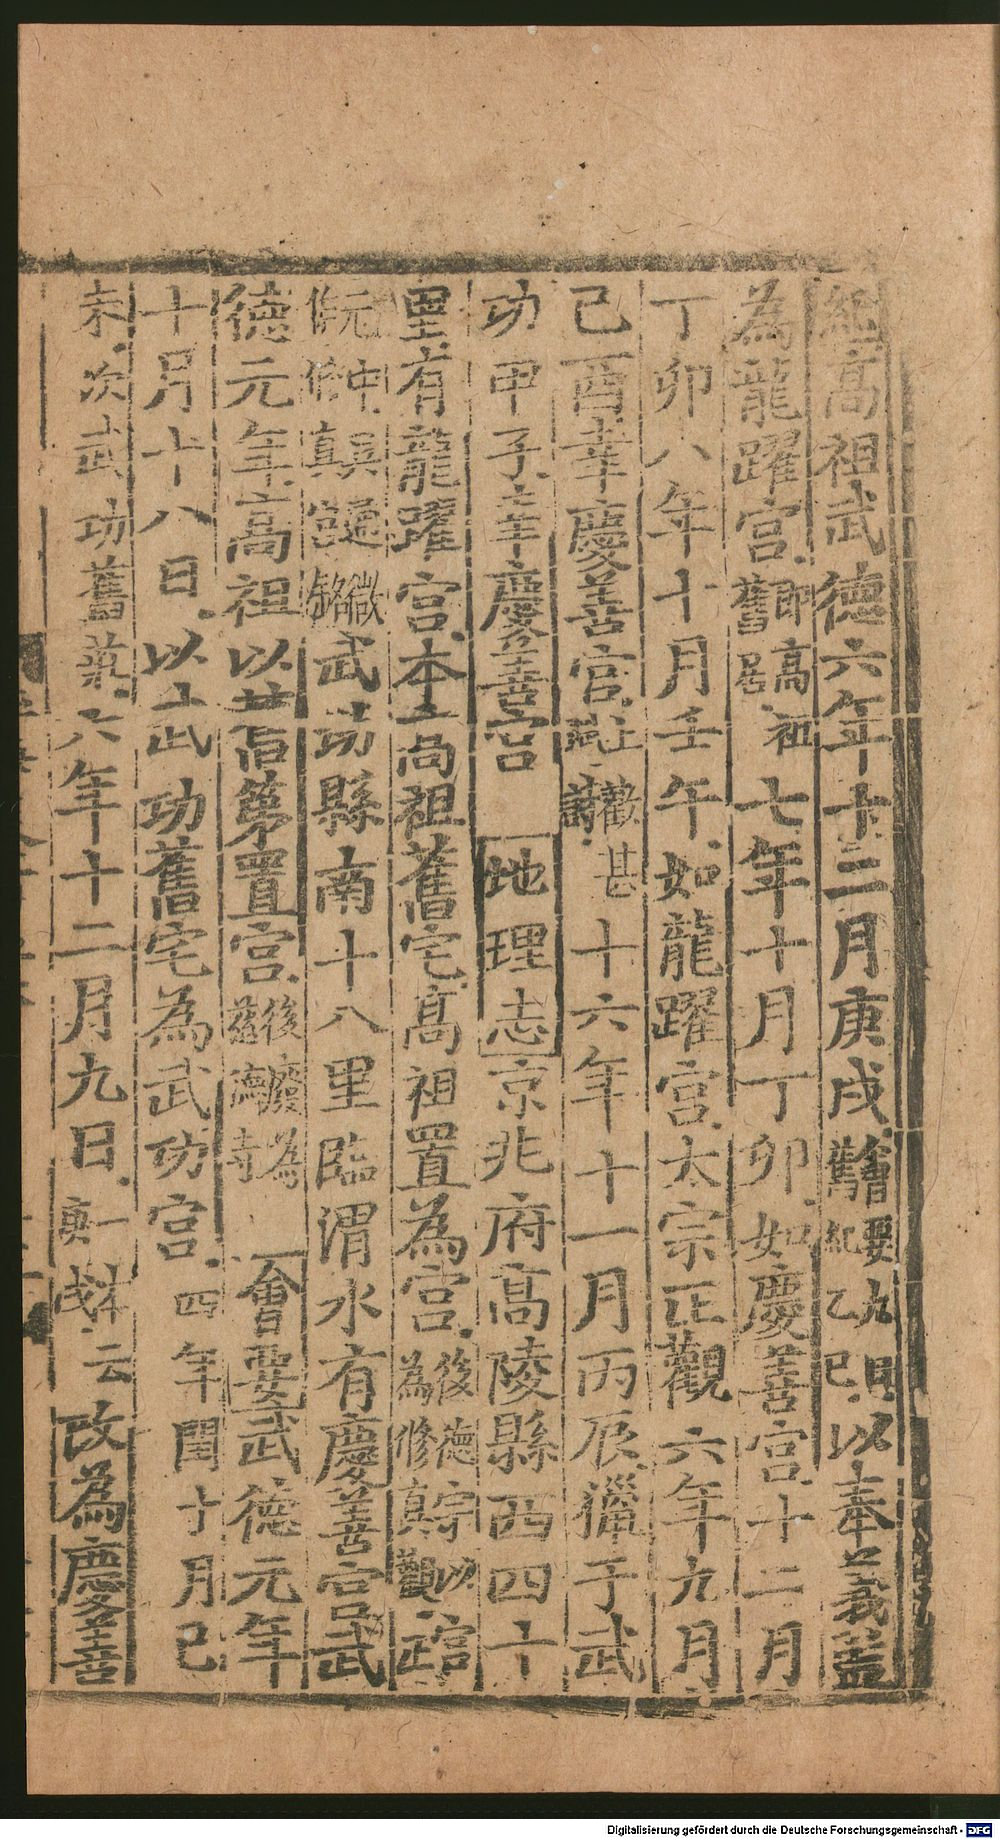 紀高祖武德六年十二月庚戌舊紀會要九月乙巳以奉義監
為龍躍宮舊居即高祖七年十月丁卯如慶善宮十二月
丁卯八年十月壬午如龍躍宮太宗正觀六年九月
己酉幸慶善宮十六年十一月丙辰獵于武
功甲子幸慶善宮地理志京兆府高陵縣西四十
里有龍躍宮本高祖舊宅高祖置為宮後德宗以為修真觀
武功縣南十八里臨渭水有慶善宮武
德元年高祖以舊第置宮後廢為慈德寺會要武德元年
十月十八日以武功舊宅為武功宮四年閏十月己
未次武功舊第六年十二月九日一本云庚戌改為慶善
Digitalisierung gefördert durch die Deutsche Forschungsgemeinschaft - DFG